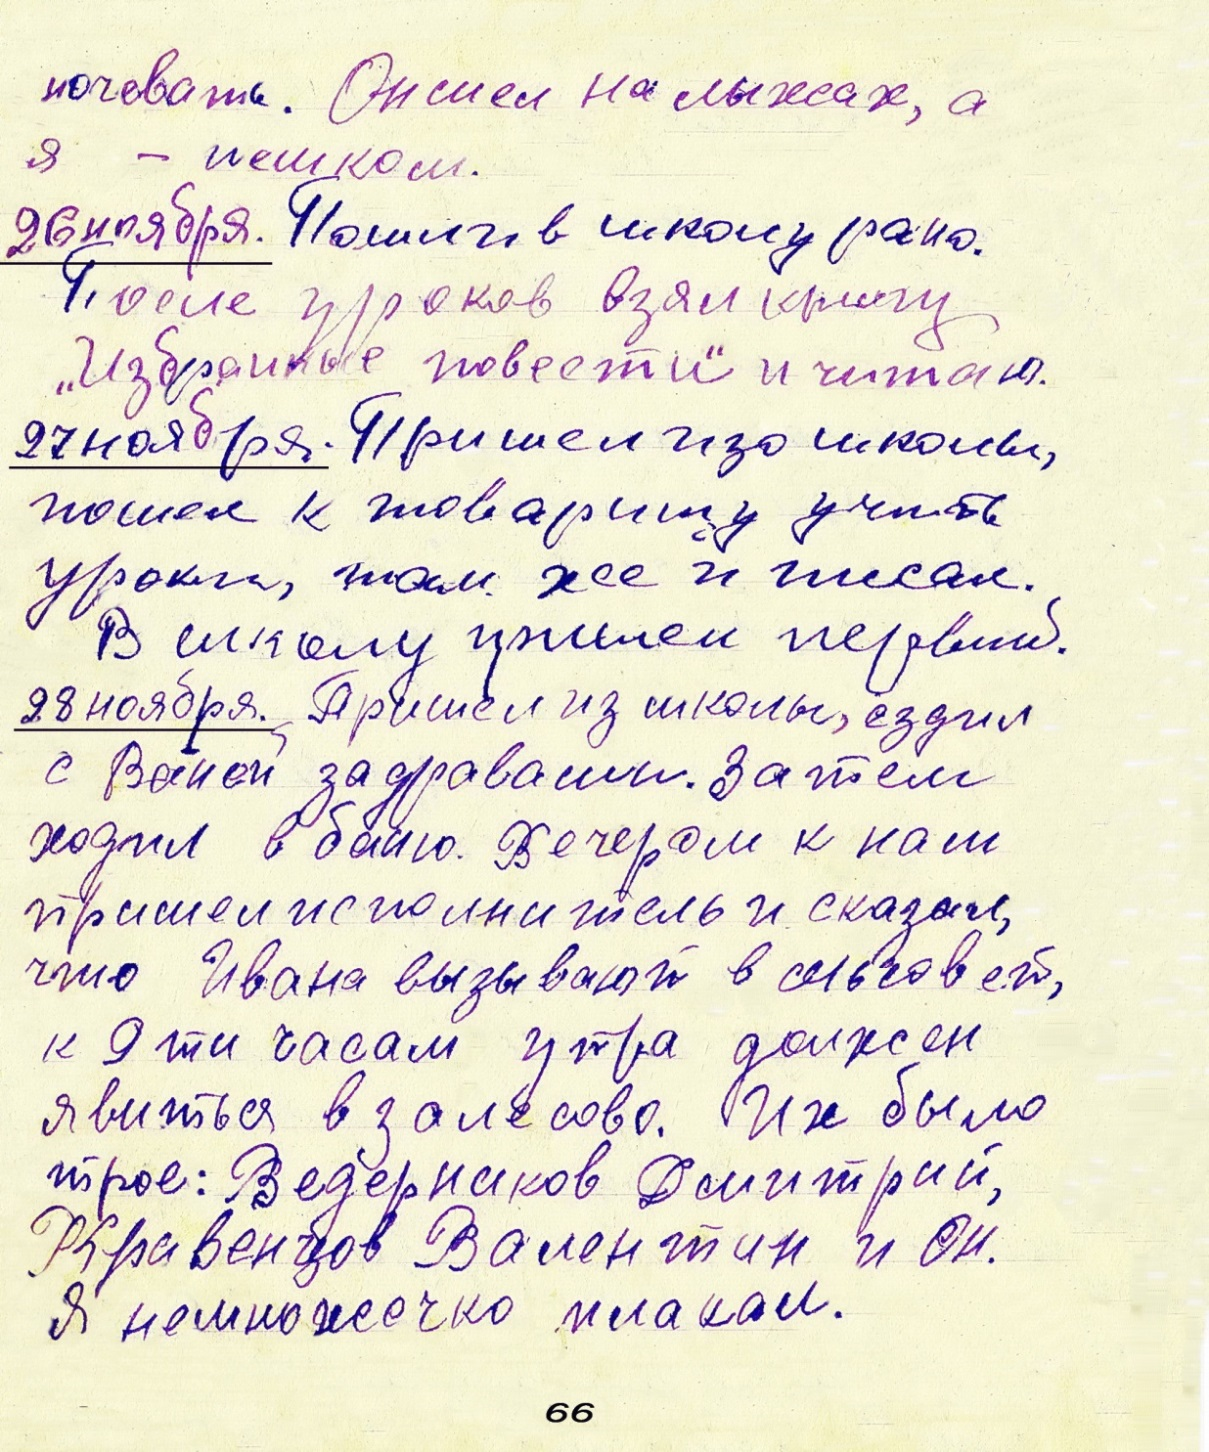 ночевать. Он шел на лыжах, а
я – пешком.
26 ноября. Пошли в школу рано.
После уроков взял книгу
„Избранные повести“ и читаю.
27 ноября. Пришел изо школы,
пошел к товарищу учить
уроки, там же и писал.
В школу пришел первый.
28 ноября. Пришел из школы, ездил
с Ваней за дровами. Затем
ходил в баню. Вечером к нам
пришел исполнитель и сказал,
что Ивана вызывают в сельсовет,
к 9 ти часам утра должен
явиться в Залесово. Их было
трое: Ведерников Дмитрий,
Кравенцов Валентин и Он.
Я немножечко плакал.
66